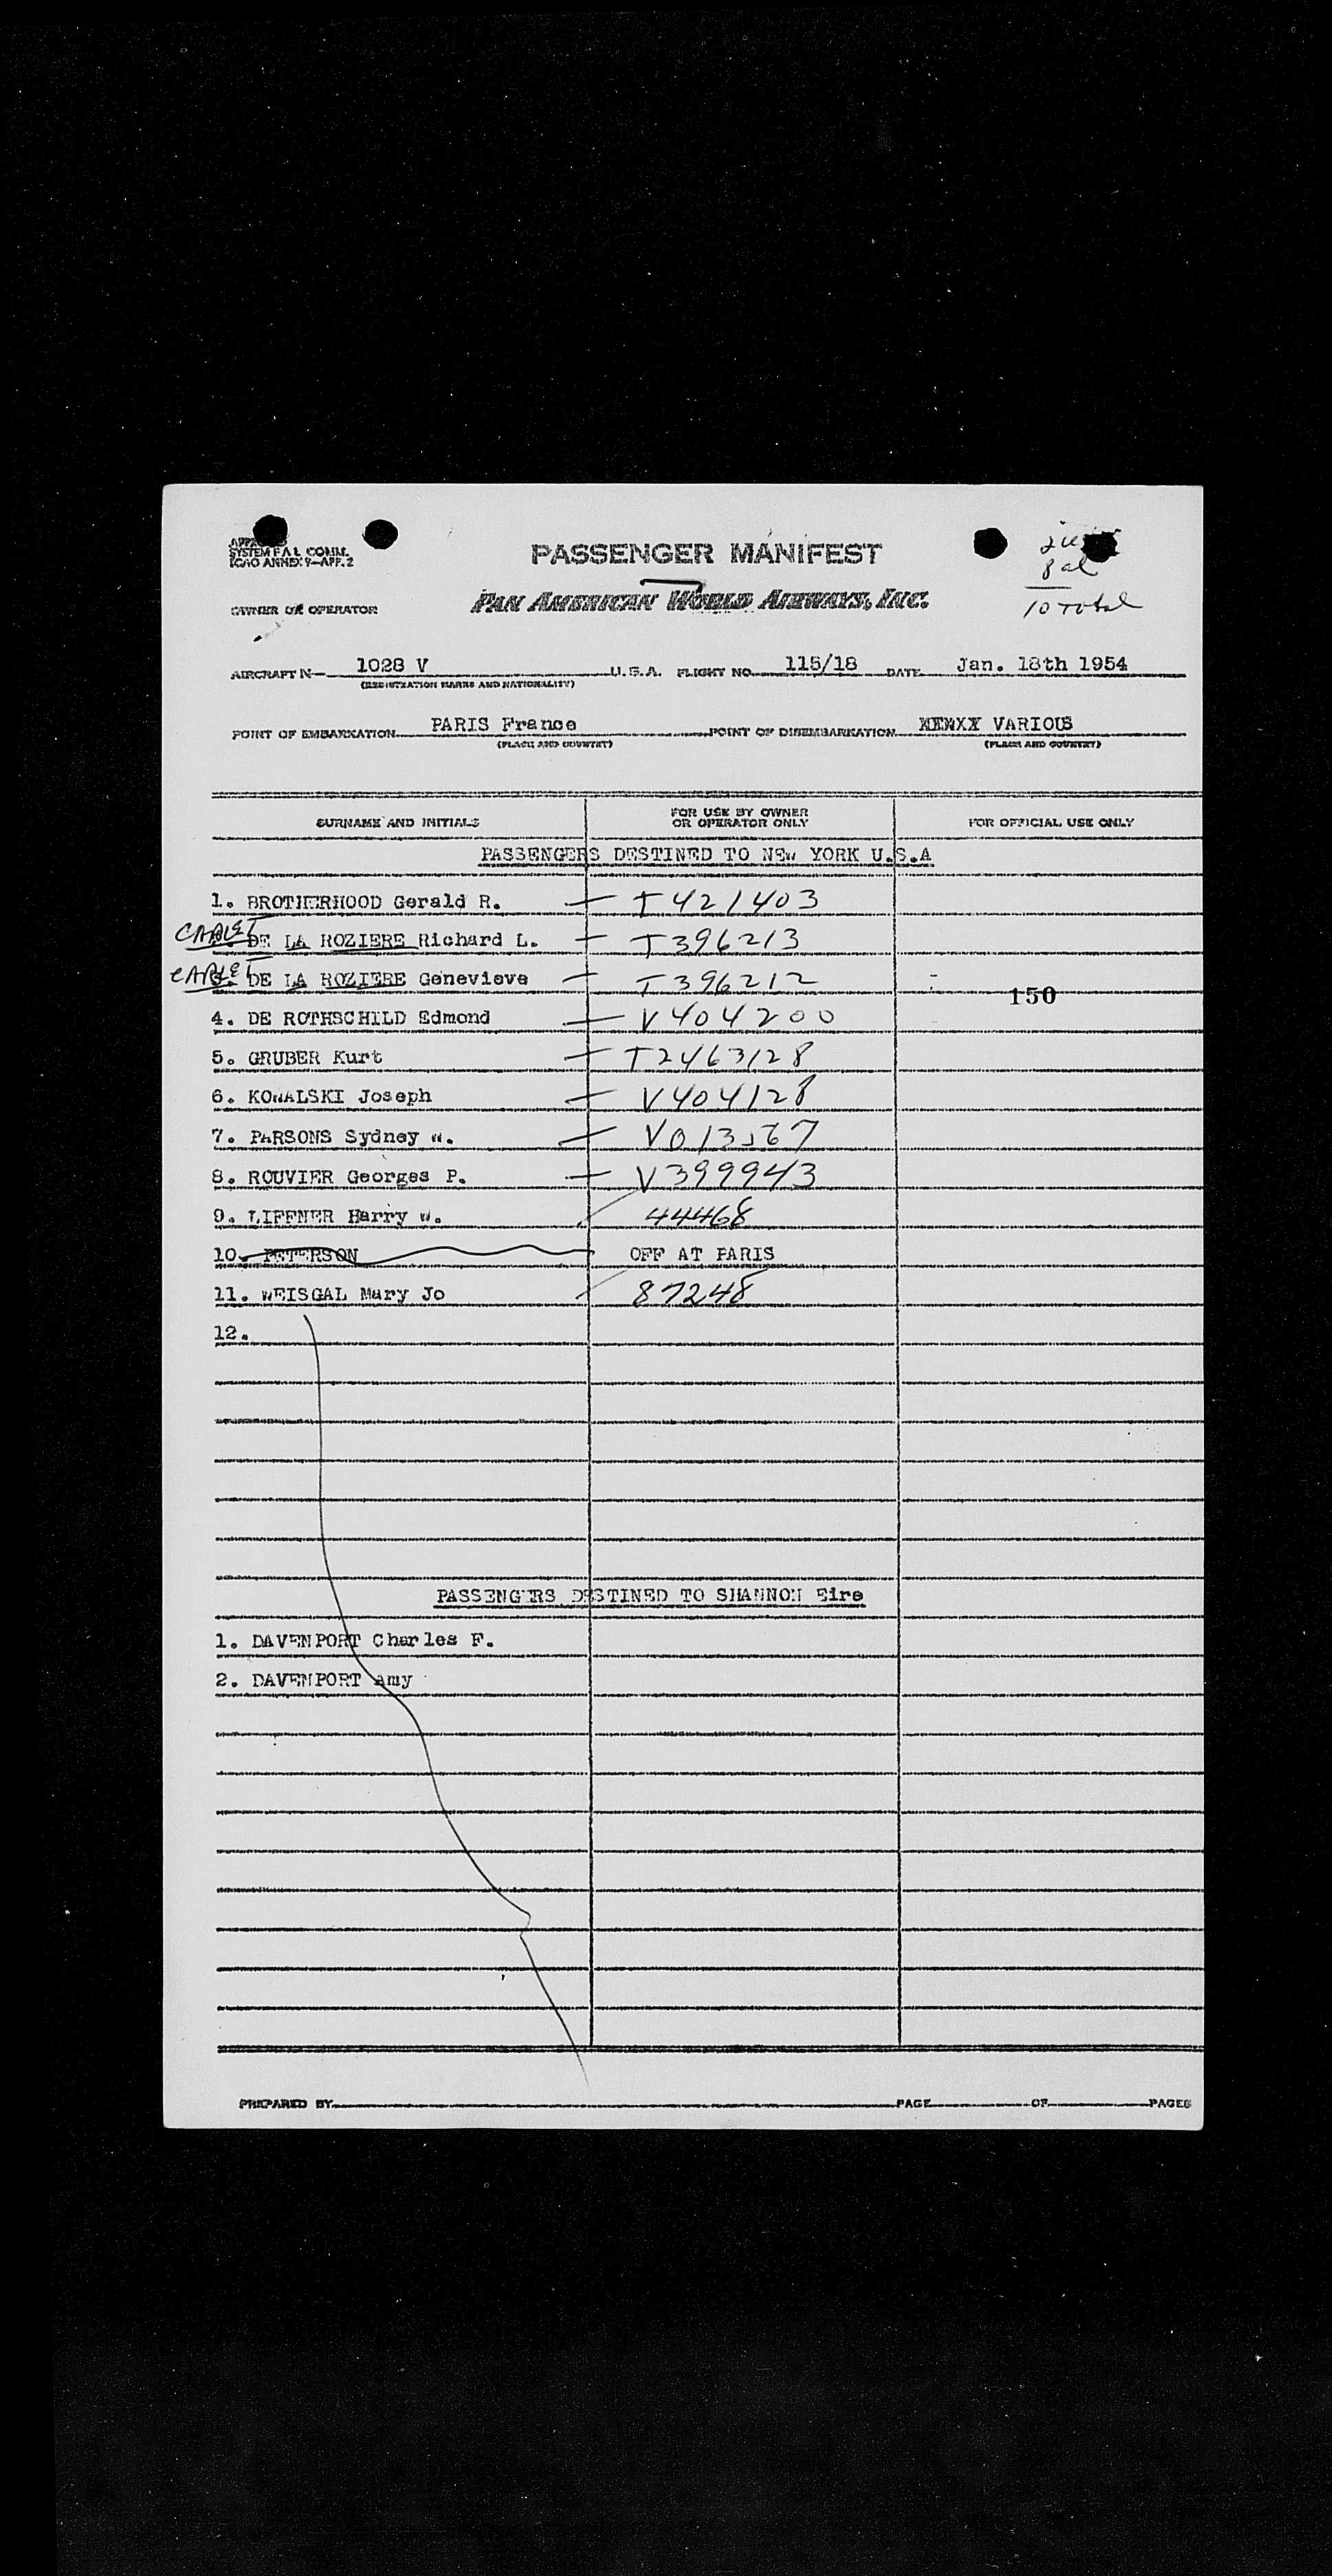 PASSENGER MANIFEST
SYSTEM F.A.L. COMM.
ICAO ANNEX 9—APP. 2
8 al
10 Total
OWNER OR OPERATOR
PAN AMERICAN WORLD AIRWAYS, INC.
AIRCRAFT N— 1028 V U.S.A. FLIGHT NO. 115/18 DATE Jan. 18th 1954
(REGISTRATION MARKS AND NATIONALITY)
POINT OF EMBARKATION PARIS France POINT OF DISEMBARKATION VARIOUS
(PLACE AND COUNTRY) (PLACE AND COUNTRY)
SURNAME AND INITIALS FOR USE BY OWNER OR OPERATOR ONLY FOR OFFICIAL USE ONLY
PASSENGERS DESTINED TO NEW YORK U.S.A
1. BROTHERHOOD Gerald R. — T421403
DE LA ROZIERE Richard L. — T396213
DE LA ROZIERE Genevieve — T396212
150
4. DE ROTHSCHILD Edmond — V404200
5. GRUBER Kurt — T2463128
6. KOWALSKI Joseph — V404128
7. PARSONS Sydney W. —
8. ROUVIER Georges P. — V399943
9. LIFFNER Harry W. 44468
10. PETERSON OFF AT PARIS
11. WEISGAL Mary Jo 87248
12.
PASSENGERS DESTINED TO SHANNON Eire
1. DAVENPORT Charles F.
2. DAVENPORT Amy
PREPARED BY PAGE OF PAGES